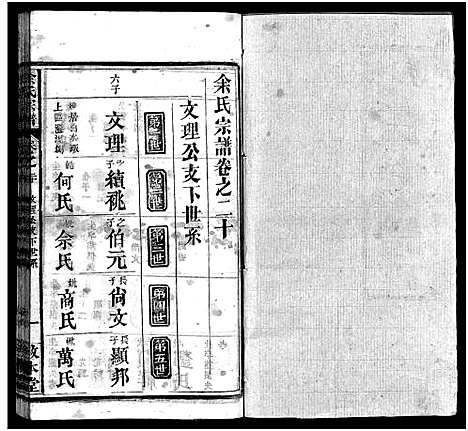 余氏宗譜卷之二十
文理公支下世系
第一世 第二世 第三世 第四世 第五世
六子 文理 子 續祧 之子 伯元 長子 尚文 長子 顯邦
何氏 余氏 商氏 萬氏
余氏宗譜 卷之二十 文理公支下世系 一 敦本堂